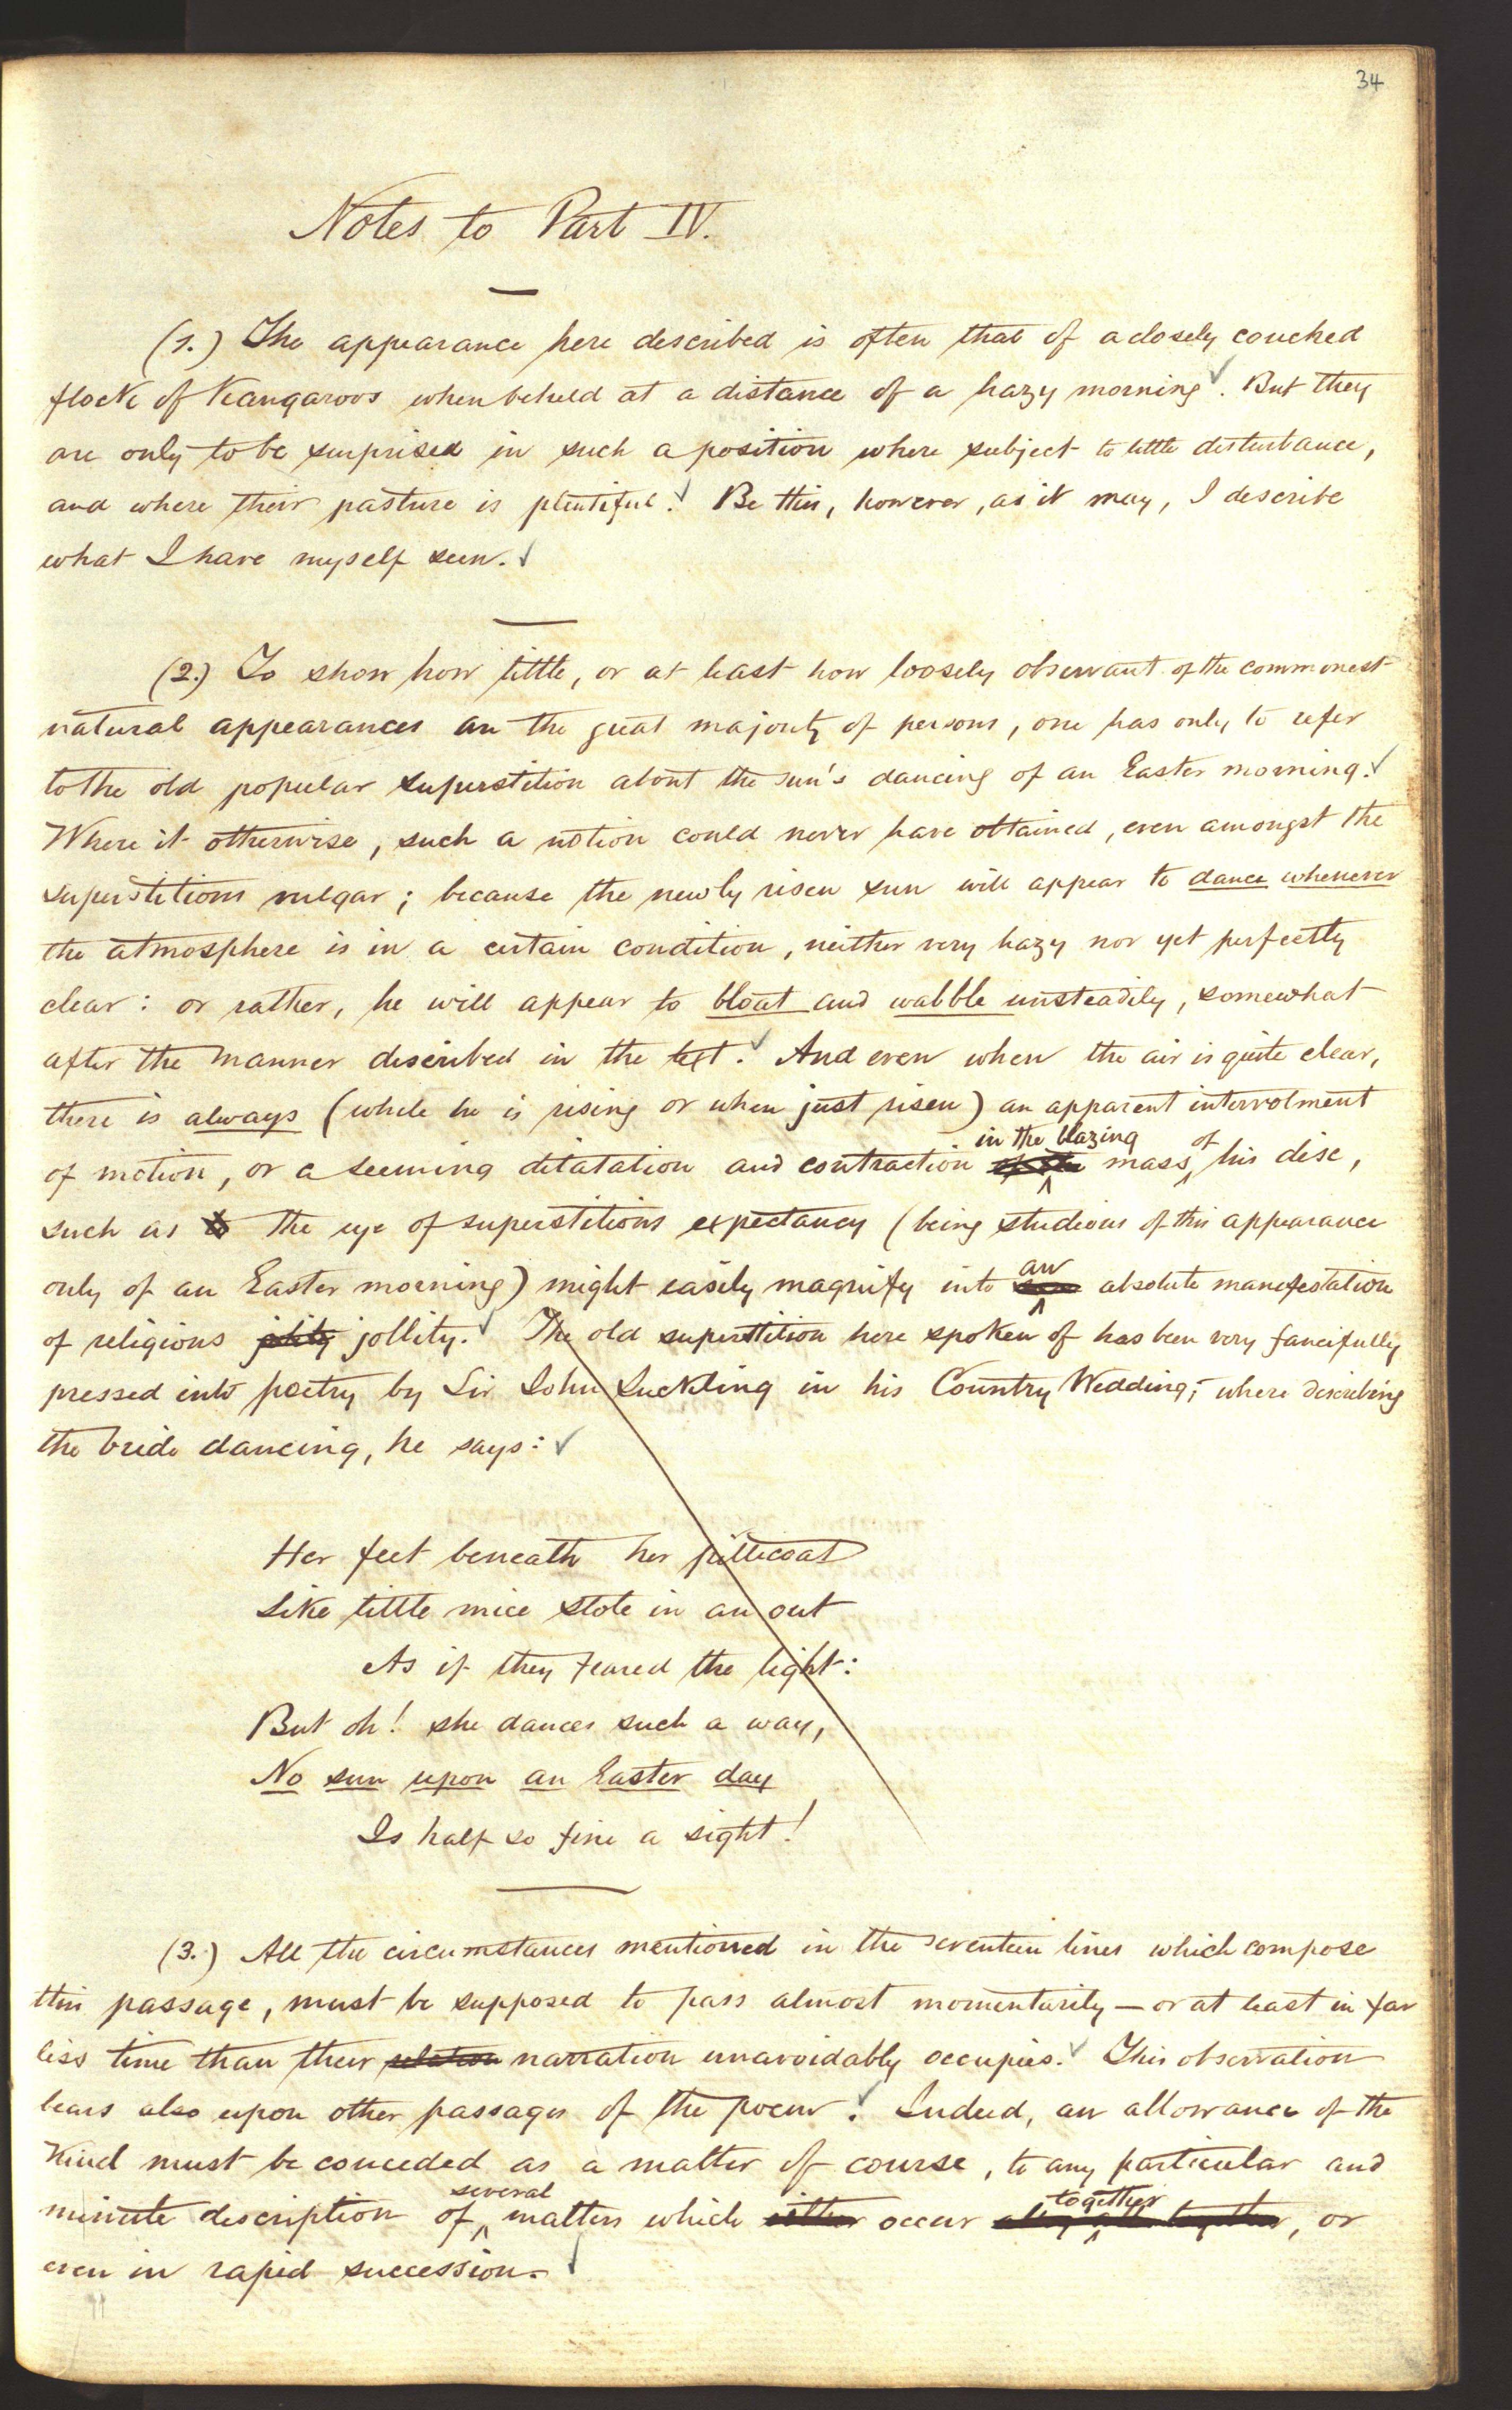 34
Notes to Part IV.
(1.) The appearance here described is often that of a closely couched
flock of Kangaroos when beheld at a distance of a hazy morning. But they
are only to be surprised in such a position where subject to little disturbance,
and where their pasture is plentiful. Be this, however, as it may, I describe
what I have myself seen.
(2.) To show how little, or at least how loosely observant of the commonest
natural appearances are the great majority of persons, one has only to refer
to the old popular superstition about the sun's dancing of an Easter morning.
Where it otherwise, such a notion could never have obtained, even amongst the
superstitious vulgar; because the newly risen sun will appear to dance whenever
the atmosphere is in a certain condition, neither very hazy nor yet perfectly
clear: or rather, he will appear to bloat and wabble unsteadily, somewhat
after the manner described in the text. And even when the air is quite clear,
there is always (while he is rising or when just risen) an apparent intervolment
in the blazing of
of motion, or a seeming dilatation and contraction of the mass his disc,
such as to the eye of superstitious expectancy (being studious of this appearance
an
only of an Easter morning) might easily magnify into absolute manifestation
of religious jolity jollity. The old superstition here spoken of has been very fancifully
pressed into poetry by Sir John Suckling in his Country Wedding; where describing
the bride dancing, he says:
Her feet beneath her petticoat
Like little mice stole in an out
As if they feared the light:
But oh! she dances such a way,
No sun upon an Easter day
Is half so fine a sight!
(3.) All the circumstances mentioned in the seventeen lines which compose
this passage, must be supposed to pass almost momentarily — or at least in far
less time than their relation narration unavoidably occupies. This observation
bears also upon other passages of the poem. Indeed, an allowance of the
Kind must be conceded as a matter of course, to any particular and
several together
minute description of matters which either occur together, or
even in rapid succession.